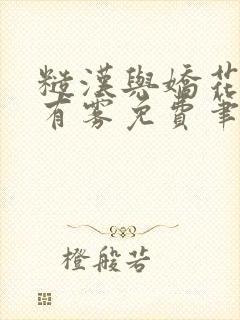 糙漢與嬌花
有雾免費筆
橙般若